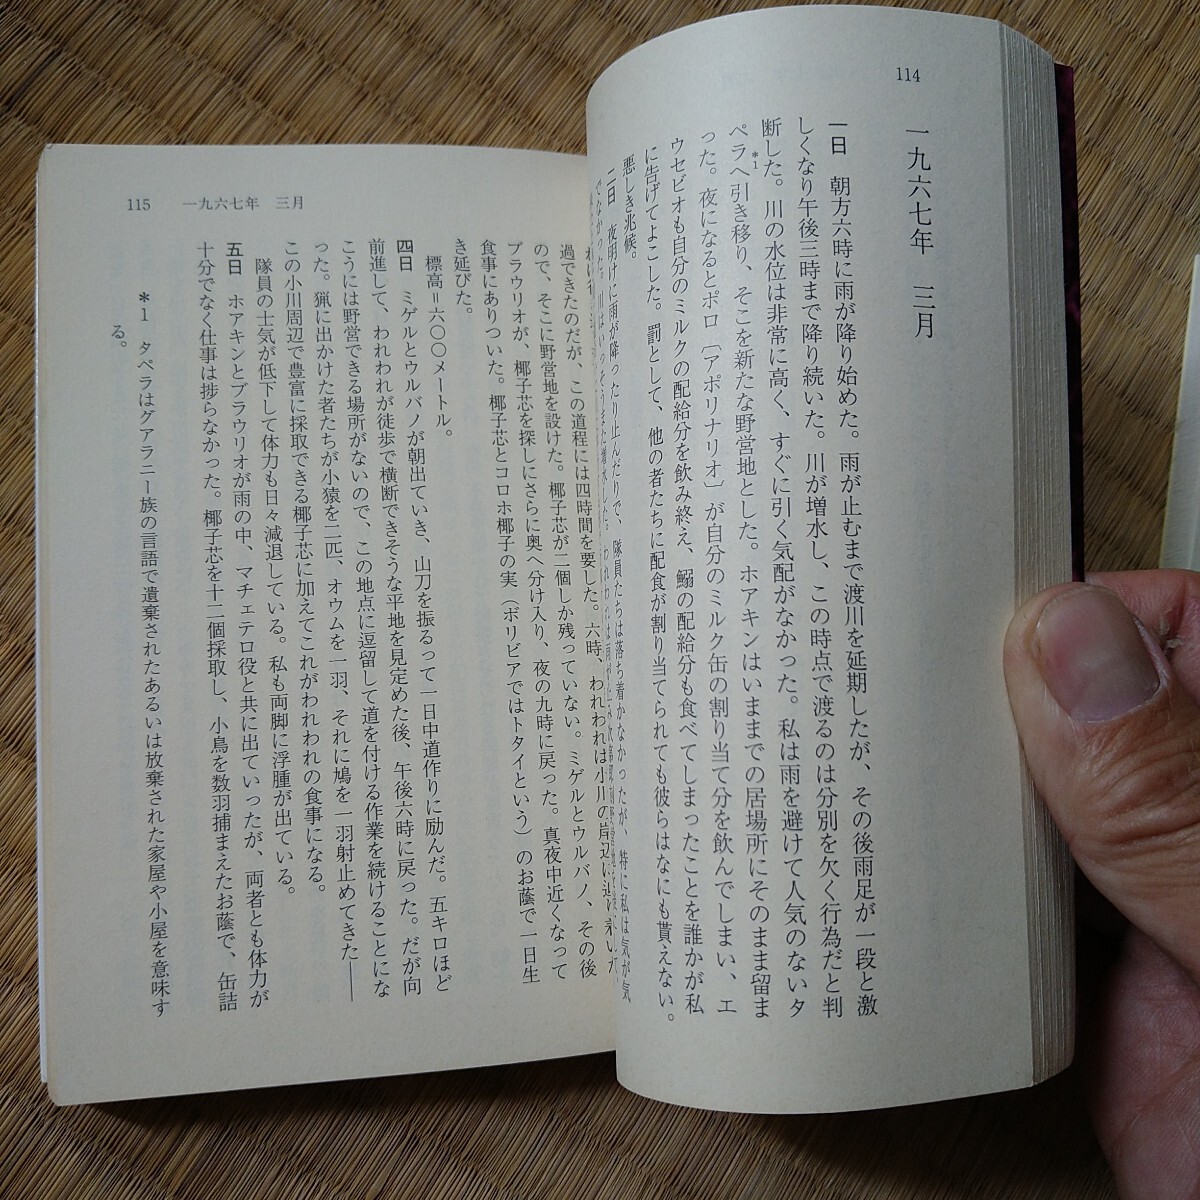 114
一九六七年　三月
一日　朝方六時に雨が降り始めた。雨が止むまで渡川を延期したが、その後雨足が一段と激
しくなり午後三時まで降り続いた。川が増水し、この時点で渡るのは分別を欠く行為だと判
断した。川の水位は非常に高く、すぐに引く気配がなかった。私は雨を避けて人気のないタ
ペラ*1へ引き移り、そこを新たな野営地とした。ホアキンはいままでの居場所にそのまま留ま
った。夜になるとポロ〔アポリナリオ〕が自分のミルク缶の割り当て分を飲んでしまい、エ
ウセビオも自分のミルクの配給分を飲み終え、鰯の配給分も食べてしまったことを誰かが私
に告げてよこした。罰として、他の者たちに配食が割り当てられても彼らはなにも貰えない。
悪しき兆候。
二日　夜明けに雨が降ったり止んだりで、隊員たちは落ち着かなかったが、特に私は気が気
でなかった。川はいっそうまた増水した。
115　一九六七年　三月
過できたのだが、この道程には四時間を要した。六時、われわれは小川の岸辺に
ので、そこに野営地を設けた。椰子芯が二個しか残っていない。ミゲルとウルバノ、その後
ブラウリオが、椰子芯を探しにさらに奥へ分け入り、夜の九時に戻った。真夜中近くなって
食事にありついた。椰子芯とコロホ椰子の実（ボリビアではトタイという）のお蔭で一日生
き延びた。
標高＝六〇〇メートル。
四日　ミゲルとウルバノが朝出ていき、山刀を振るって一日中道作りに励んだ。五キロほど
前進して、われわれが徒歩で横断できそうな平地を見定めた後、午後六時に戻った。だが向
こうには野営できる場所がないので、この地点に逗留して道を付ける作業を続けることにな
った。猟に出かけた者たちが小猿を二匹、オウムを一羽、それに鳩を一羽射止めてきた――
この小川周辺で豊富に採取できる椰子芯に加えてこれがわれわれの食事になる。
隊員の士気が低下して体力も日々減退している。私も両脚に浮腫が出ている。
五日　ホアキンとブラウリオが雨の中、マチェテロ役と共に出ていったが、両者とも体力が
十分でなく仕事は捗らなかった。椰子芯を十二個採取し、小鳥を数羽捕まえたお蔭で、缶詰
*1　タペラはグアラニー族の言語で遺棄されたあるいは放棄された家屋や小屋を意味す
る。